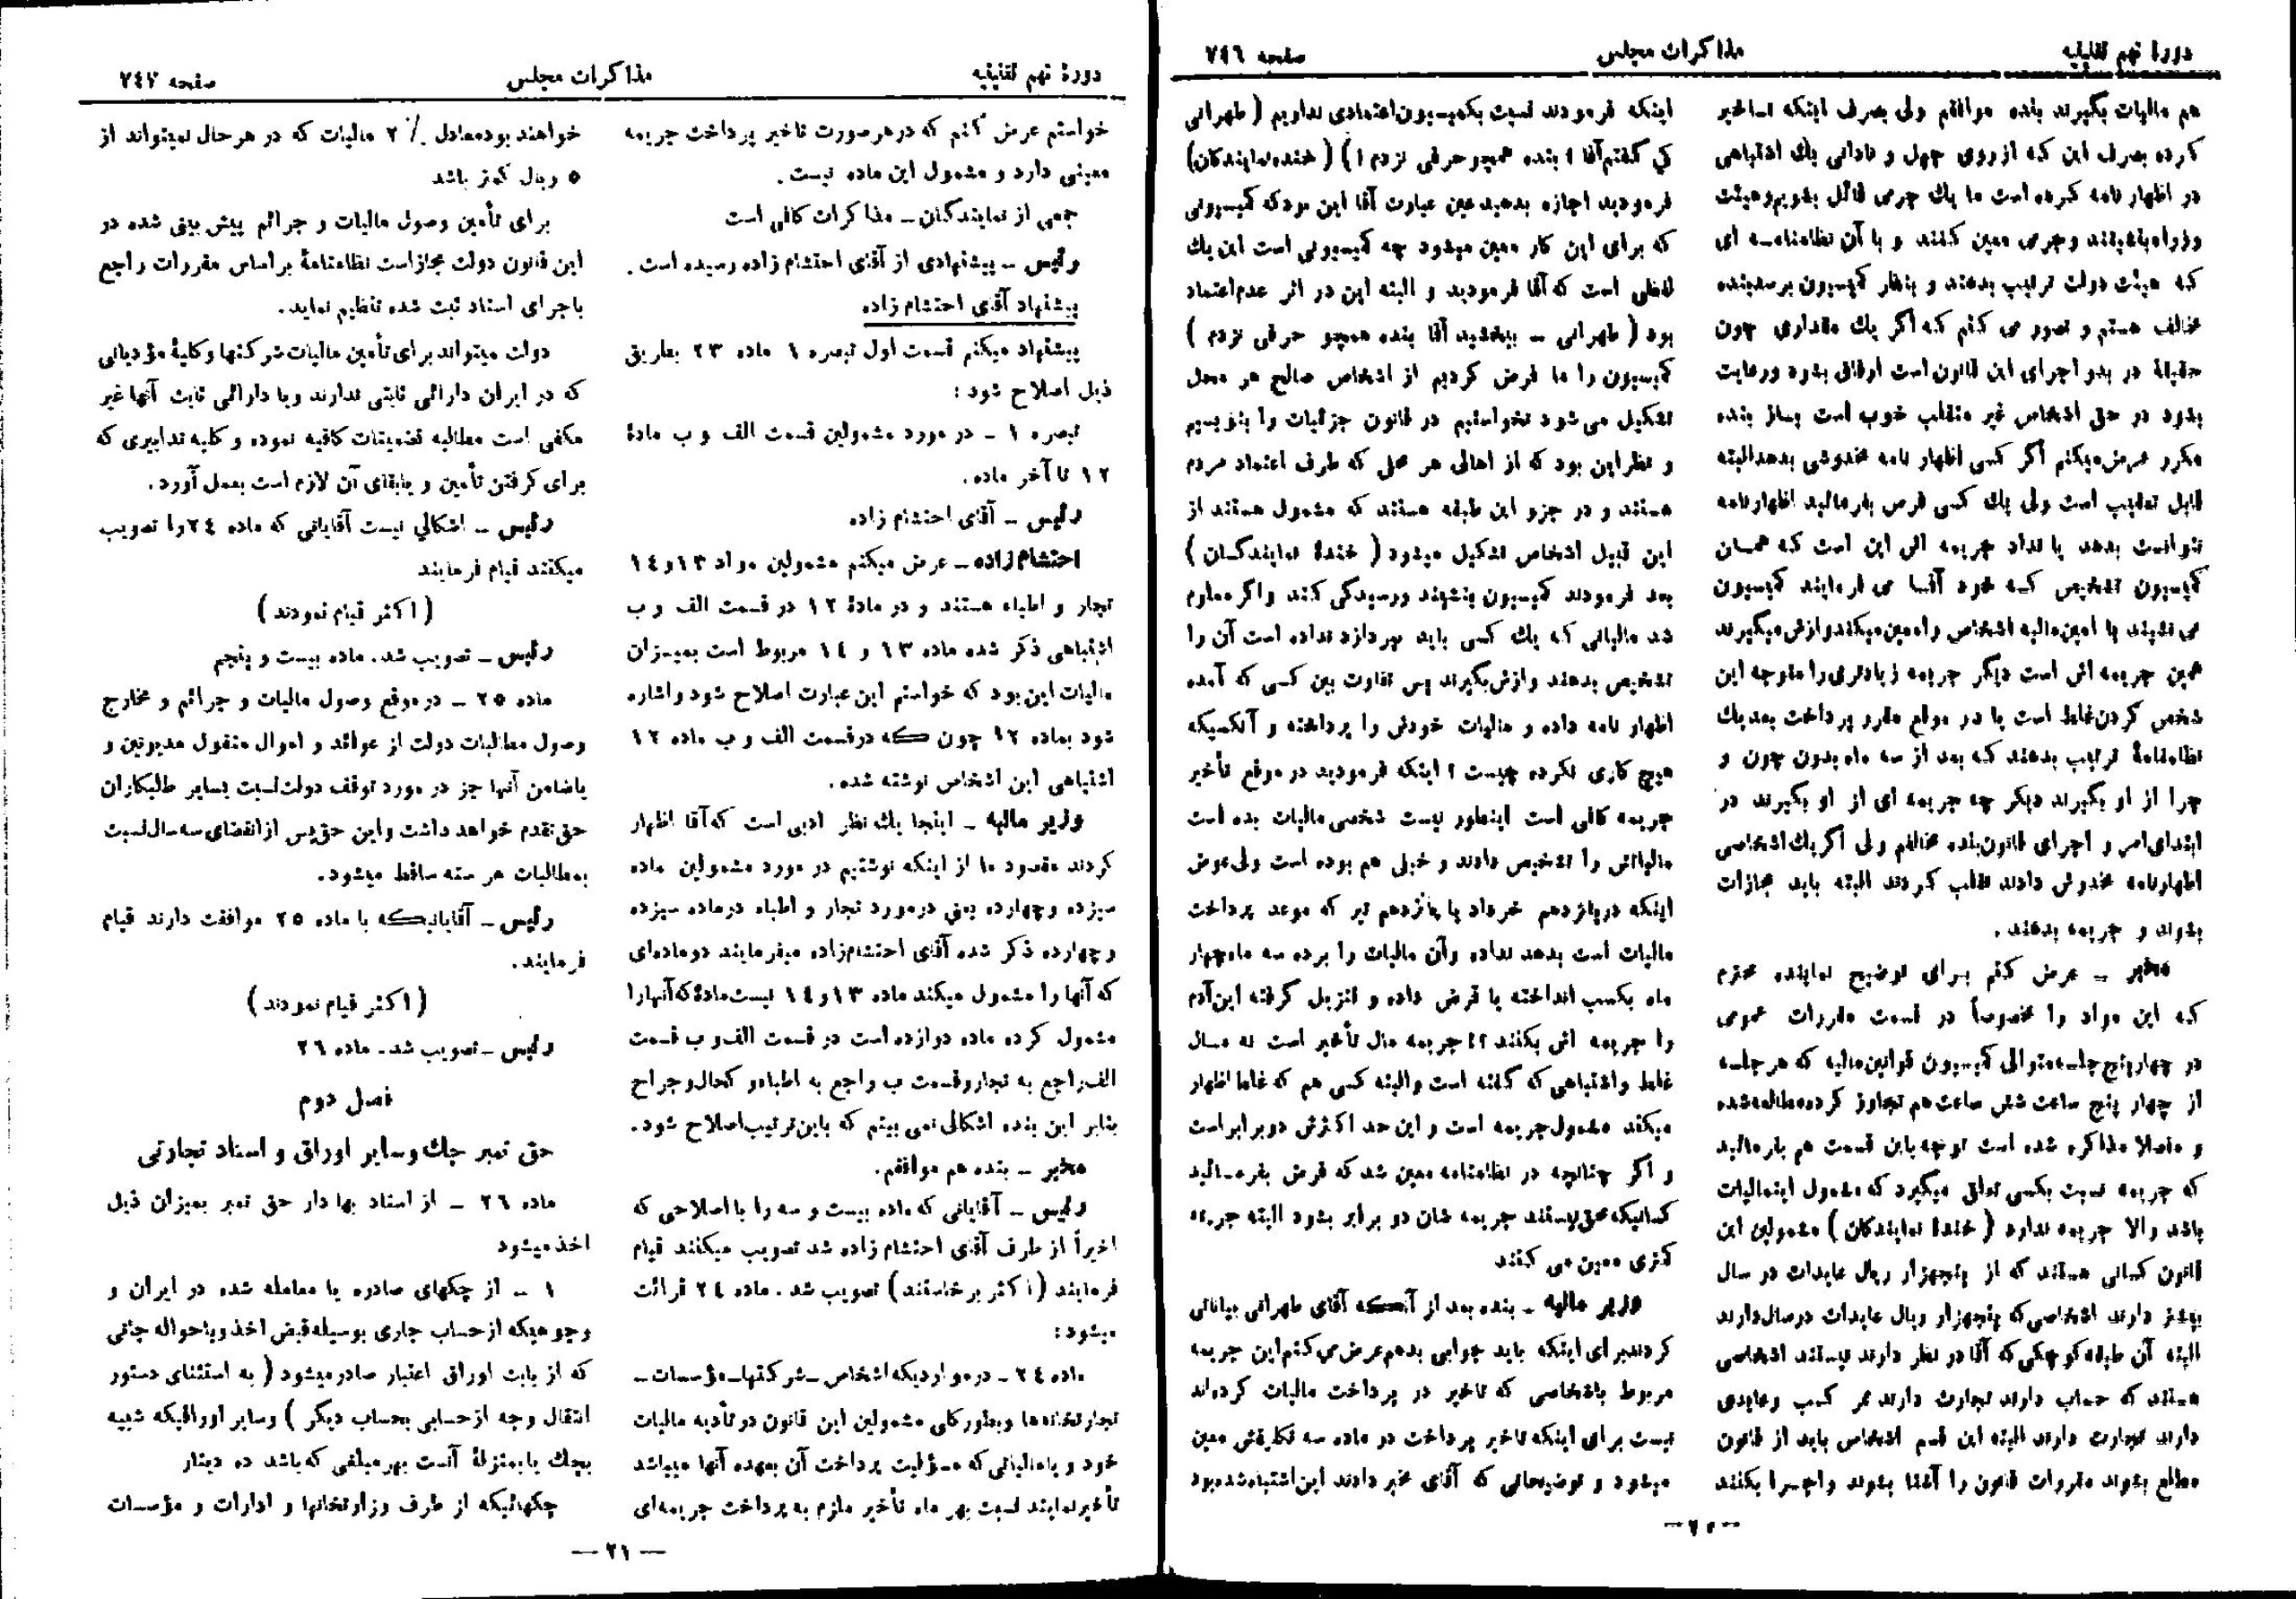 دورهٔ نهم تقنینیه
مذاکرات مجلس
صفحه ۷٤٦
هم مالیات بگیرند بنده موافقم ولی بصرف اینکه تأخیر
کرده بصرف این که از روی جهل و نادانی یك اشتباهی
در اظهار نامه کرده است ما یك جرمی قائل بشویم و هیئت
وزراء بنشینند و جرمی معین کنند و با آن نظامنامه ای
که هیئت دولت ترتیب بدهند و بنظر کمیسیون برسد بنده
مخالف هستم و تصور می کنم که اگر یك مقداری چون
حقیقة در بدو اجرای این قانون است ارفاق بشود و رعایت
بشود در حق اشخاص غیر متقلب خوب است بساز بنده
مکرر عرض میکنم اگر کسی اظهار نامه مخدوشی بدهد البته
قابل تعقیب است ولی یك کسی فرض بفرمائید اظهارنامه
نتوانست بدهد یا نداد جریمه اش این است که همان
کمیسیون تشخیص که خود آقا می فرمایند کمیسیون
می نشیند با امین مالیه اشخاص را معین میکند و ازش میگیرند
همین جریمه اش است دیگر جریمه زیادتری را متوجه این
شخص کردن غلط است یا در مواقع مقرر پرداخت بعد یك
نظامنامهٔ ترتیب بدهند که بعد از سه ماه بدون چون و
چرا از او بگیرند دیگر چه جریمه ای از او بگیرند در
ابتدای امر و اجرای قانون بنده مخالفم ولی اگر یك اشخاصی
اظهارنامه مخدوش دادند تقلب کردند البته باید مجازات
بشوند و جریمه بدهند .
مخبر ـ عرض کنم برای توضیح نماینده محترم
که این مواد را مخصوصاً در قسمت مقررات عمومی
در چهار پنج جلسه متوالی کمیسیون قوانین مالیه که هر جلسه
از چهار پنج ساعت شش ساعت هم تجاوز کرده مطالعه شده
و مفصلا مذاکره شده است توجه باین قسمت هم بفرمائید
که جریمه نسبت بکسی تعلق میگیرد که مشمول این مالیات
باشد والا جریمه ندارد ( خندهٔ نمایندگان ) مشمولین این
قانون کسانی هستند که از پنجهزار ریال عایدات در سال
بیشتر دارند اشخاصی که پنجهزار ریال عایدات در سال دارند
البته آن طبقه کوچکی که آقا در نظر دارند نیستند اشخاصی
هستند که حساب دارند تجارت دارند ممر کسب و عایدی
دارند تجارت دارند البته این قسم اشخاص باید از قانون
مطلع بشوند مقررات قانون را آشنا بشوند و اجرا بکنند
اینکه فرمودند نسبت بکمیسیون اعتمادی نداریم ( طهرانی
کی گفتم آقا ؟ بنده همچو حرفی نزدم !) ( خنده نمایندگان)
فرمودید اجازه بدهید عین عبارت آقا این بود که کمیسیونی
که برای این کار معین میشود چه کمیسیونی است این یك
لفظی است که آقا فرمودید و البته این در اثر عدم اعتماد
بود ( طهرانی ـ ببخشید آقا بنده همچو حرفی نزدم )
کمیسیون را ما فرض کردیم از اشخاص صالح هر محل
تشکیل می شود نخواستیم در قانون جزئیات را بنویسیم
و نظر این بود که از اهالی هر محلی که طرف اعتماد مردم
هستند و در جزو این طبقه هستند که مشمول هستند از
این قبیل اشخاص تشکیل میشود ( خندهٔ نمایندگان )
بعد فرمودند کمیسیون بنشیند و رسیدگی کند و اگر معلوم
شد مالیاتی که یك کسی باید بپردازد نداده است آن را
تشخیص بدهند و ازش بگیرند پس تفاوت بین کسی که آمده
اظهار نامه داده و مالیات خودش را پرداخته و آنکسیکه
هیچ کاری نکرده چیست ؟ اینکه فرمودید در موقع تأخیر
جریمه کافی است اینطور نیست شخصی مالیات بده است
مالیاتش را تشخیص دادند و خیلی هم بوده است ولی عوض
اینکه در پانزدهم خرداد یا پانزدهم تیر که موعد پرداخت
مالیات است بدهد نداده و آن مالیات را برده سه ماه چهار
ماه بکسب انداخته یا قرض داده و تنزیل گرفته این آدم
را جریمه اش بکنند ؟! جریمه مال تأخیر است نه مال
غلط و اشتباهی که گفته است والبته کسی هم که غلط اظهار
میکند مشمول جریمه است و این حد اکثرش دو برابر است
و اگر چنانچه در نظامنامه معین شد که فرض بفرمائید
کسانیکه محق نیستند جریمه شان دو برابر بشود البته جریمه
کمتری معین می کنند
وزیر مالیه ـ بنده بعد از آنکه آقای طهرانی بیاناتی
کردند برای اینکه باید جوابی بدهم عرض می کنم این جریمه
مربوط باشخاصی که تاخیر در پرداخت مالیات کرده اند
نیست برای اینکه تاخیر پرداخت در ماده سه تکلیفش معین
میشود و توضیحاتی که آقای مخبر دادند این اشتباه شده بود
ـ ۲۰ ـ
دورهٔ نهم تقنینیه
مذاکرات مجلس
صفحه ۷٤۷
خواستم عرض کنم که در هر صورت تاخیر پرداخت جریمه
معینی دارد و مشمول این ماده نیست .
جمعی از نمایندگان ـ مذاکرات کافی است
رئیس ـ پیشنهادی از آقای احتشام زاده رسیده است .
پیشنهاد آقای احتشام زاده
پیشنهاد میکنم قسمت اول تبصره ۱ ماده ۲۳ بطریق
ذیل اصلاح شود :
تبصره ۱ ـ در مورد مشمولین قسمت الف و ب مادهٔ
۱۲ تا آخر ماده .
رئیس ـ آقای احتشام زاده
احتشام زاده ـ عرض میکنم مشمولین مواد ۱۳و۱٤
تجار و اطباء هستند و در مادهٔ ۱۲ در قسمت الف و ب
اشتباهی ذکر شده ماده ۱۳ و ۱٤ مربوط است بمیزان
مالیات این بود که خواستم این عبارت اصلاح شود و اشاره
شود بماده ۱۲ چون که در قسمت الف و ب ماده ۱۲
اشتباهی این اشخاص نوشته شده .
وزیر مالیه ـ اینجا یك نظر ادبی است که آقا اظهار
کردند مقصود ما از اینکه نوشتیم در مورد مشمولین ماده
سیزده و چهارده یعنی در مورد تجار و اطباء در ماده سیزده
و چهارده ذکر شده آقای احتشام زاده میفرمایند دو ماده ای
که آنها را مشمول میکند ماده ۱۳و۱٤ نیست مادهٔ که آنها را
مشمول کرده ماده دوازده است در قسمت الف و ب قسمت
الف راجع به تجار و قسمت ب راجع به اطباء و کحال و جراح
بنابر این بنده اشکالی نمی بینم که باین ترتیب اصلاح شود .
مخبر ـ بنده هم موافقم .
رئیس ـ آقایانی که ماده بیست و سه را با اصلاحی که
اخیراً از طرف آقای احتشام زاده شد تصویب میکنند قیام
فرمایند (اکثر برخاستند) تصویب شد . ماده ۲٤ قرائت
میشود :
ماده ۲٤ ـ در مواردیکه اشخاص ـ شرکتها ـ مؤسسات ـ
تجارتخانه ها و بطور کلی مشمولین این قانون در تأدیه مالیات
خود و یا مالیاتی که مسؤلیت پرداخت آن بعهده آنها میباشد
تأخیر نمایند نسبت بهر ماه تأخیر ملزم به پرداخت جریمه ای
خواهند بود معادل ٪ ۲ مالیات که در هر حال نمیتواند از
۵ ریال کمتر باشد
برای تأمین وصول مالیات و جرائم پیش بینی شده در
این قانون دولت مجاز است نظامنامهٔ بر اساس مقررات راجع
باجرای اسناد ثبت شده تنظیم نماید .
دولت میتواند برای تأمین مالیات شرکتها و کلیهٔ مؤدیانی
که در ایران دارائی ثابتی ندارند و یا دارائی ثابت آنها غیر
مکفی است مطالبه تضمینات کافیه نموده و کلیه تدابیری که
برای گرفتن تأمین و یا بقای آن لازم است بعمل آورد .
رئیس ـ اشکالی نیست آقایانی که ماده ۲٤ را تصویب
میکنند قیام فرمایند
( اکثر قیام نمودند )
رئیس ـ تصویب شد . ماده بیست و پنجم
ماده ۲۵ ـ در موقع وصول مالیات و جرائم و مخارج
وصول مطالبات دولت از عوائد و اموال منقول مدیونین و
یا ضامن آنها جز در مورد توقف دولت نسبت بسایر طلبکاران
حق تقدم خواهد داشت و این حق پس از انقضای سه سال نسبت
بمطالبات هر سنه ساقط میشود .
رئیس ـ آقایانیکه با ماده ۲۵ موافقت دارند قیام
فرمایند .
( اکثر قیام نمودند )
رئیس ـ تصویب شد . ماده ۲٦
فصل دوم
حق تمبر چك و سایر اوراق و اسناد تجارتی
ماده ۲٦ ـ از اسناد بها دار حق تمبر بمیزان ذیل
اخذ میشود
۱ ـ از چکهای صادره یا معامله شده در ایران و
وجوهیکه از حساب جاری بوسیله قبض اخذ و یا حواله جاتی
که از بابت اوراق اعتبار صادر میشود ( به استثنای دستور
انتقال وجه از حسابی بحساب دیگر ) و سایر اوراقیکه شبیه
بچك یا بمنزلهٔ آنست بهر مبلغی که باشد ده دینار
چکهائیکه از طرف وزارتخانها و ادارات و مؤسسات
ـ ۲۱ ـ